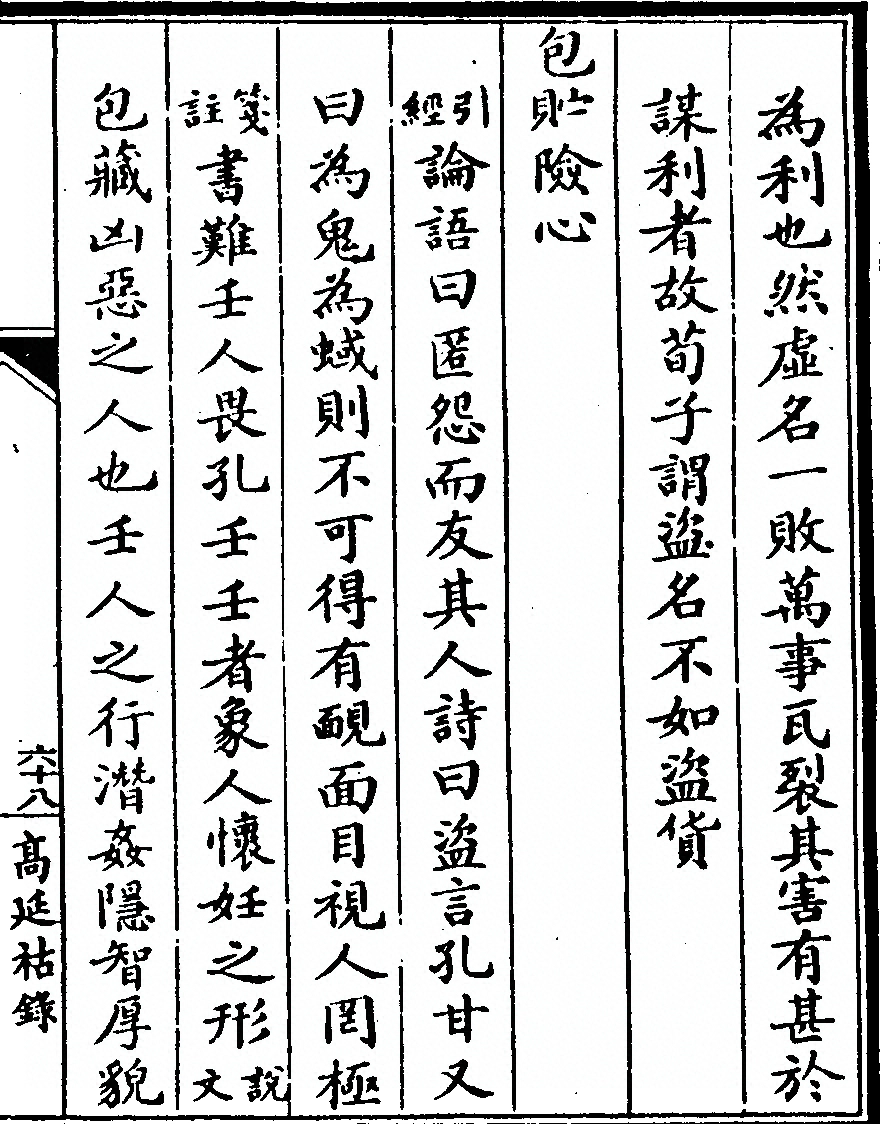 為利也然虛名一敗萬事瓦裂其害有甚於
謀利者故荀子謂盜名不如盜貨
包貯險心
引經論語曰匿怨而友其人詩曰盜言孔甘又
曰為鬼為蜮則不可得有靦面目視人罔極
箋註書難壬人畏孔壬壬者象人懷妊之形說文
包藏凶惡之人也壬人之行潛姦隱智厚貌
六十八
高延祜錄